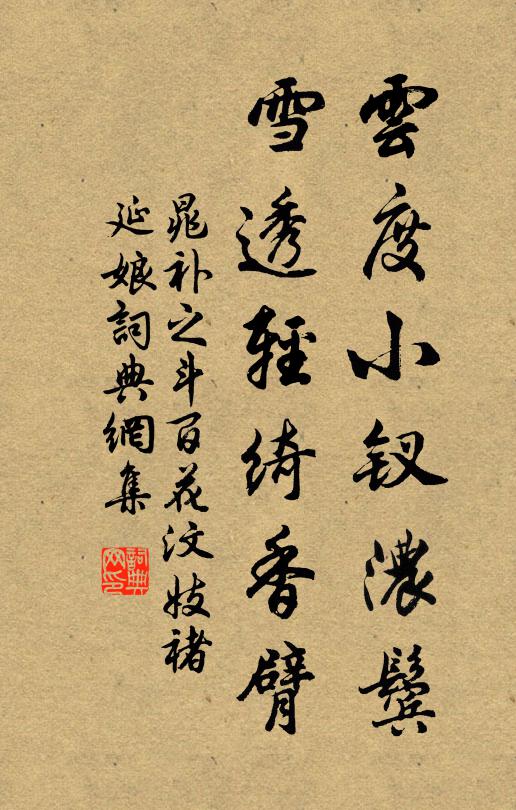 雲度小釵濃鬢
雪透輕綺香臂
晁补之斗百花汶妓褚
延娘詞典網集
詞典
网印